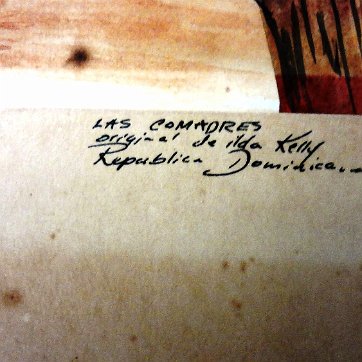 LAS COMADRES
original de ilda Kelly
Republica Dominicana